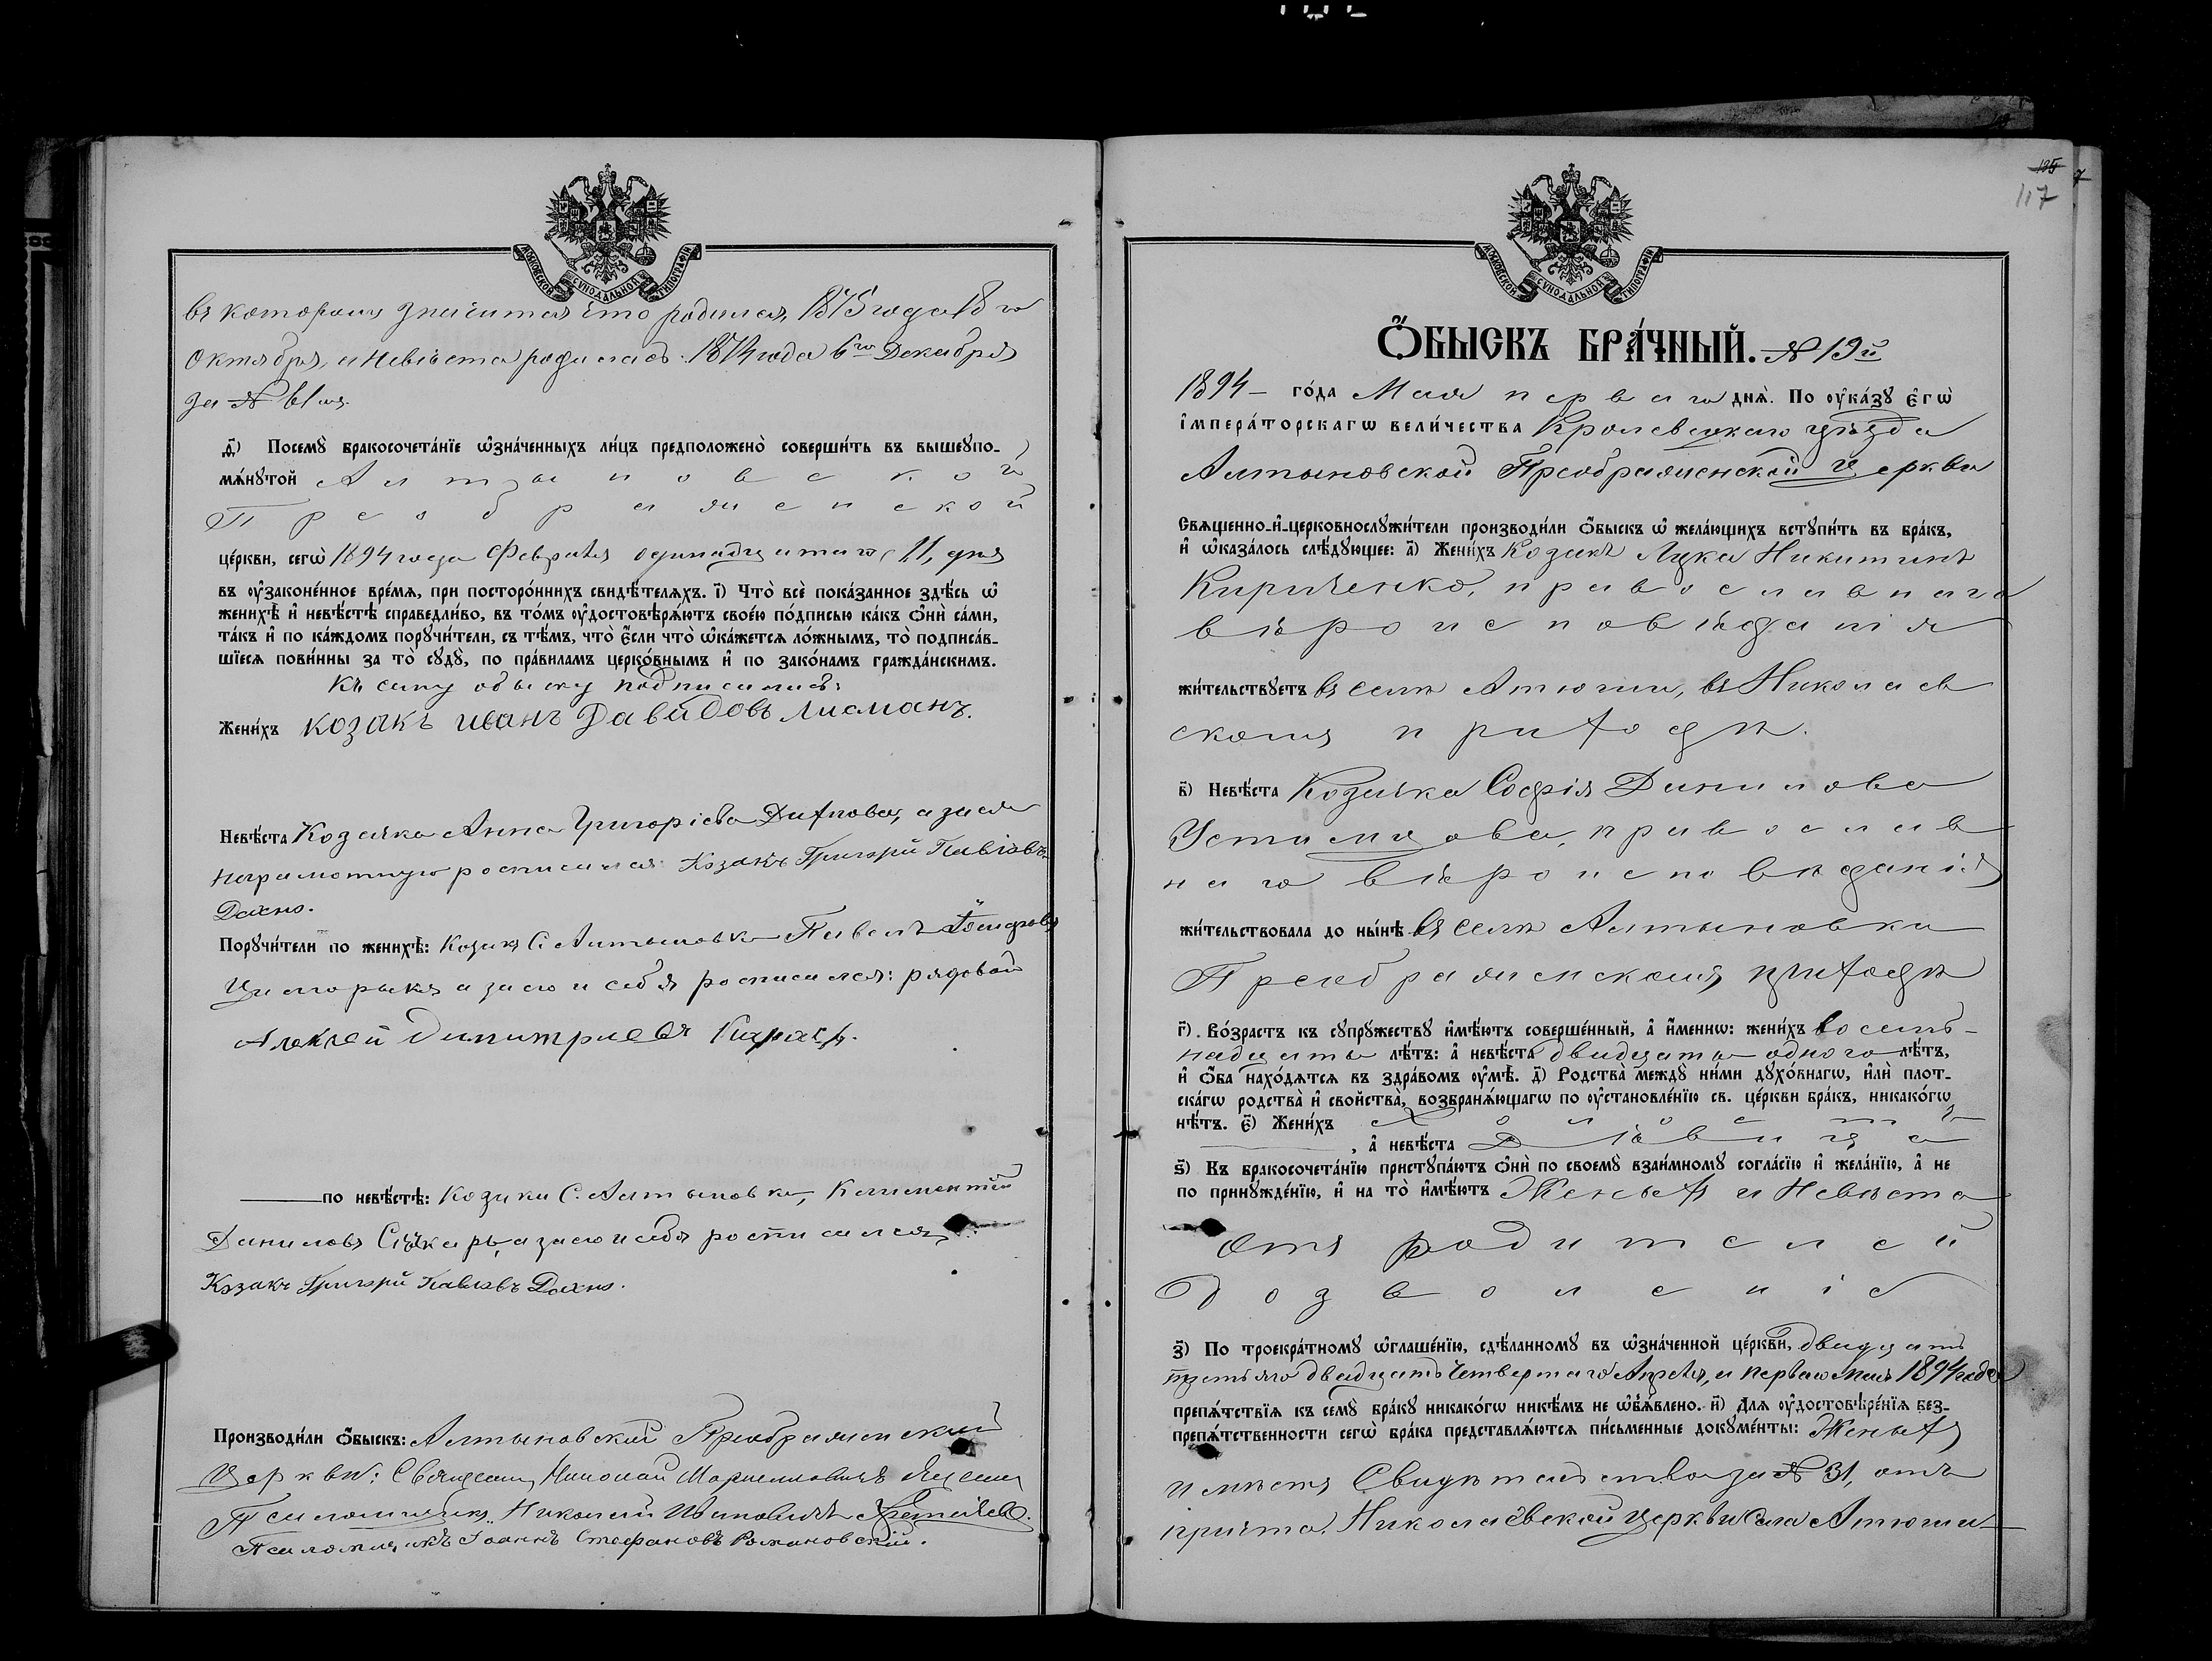 МОСКОВСКОЙ СУНОДАЛЬНОЙ ТИПОГРАФІИ
въ которомъ значится что родился, 1875 года 18 го
Октября, и Невѣста родилась 1874 года 6го Декабря
за №
д҃) Посемꙋ̀ бракосочета́нїе ѡ҆зна́ченныхъ ли́цъ предположено̀ соверши́ть въ вышеꙋпо-
мѧ́нꙋтой Алтыновской
Преображенской
це́ркви, сегѡ̀ 1894 года Февраля одинадцатаго 11, дня
въ ᲂу҆законе́нное вре́мѧ, при посторо́ннихъ свидѣ́телѧхъ. і҃) Что̀ всѐ пока́занное здѣ́сь ѡ҆
женихѣ̀ и҆ невѣ́стѣ справедли́во, въ то́мъ ᲂу҆достовѣрѧ́ютъ свое́ю по́дписью ка́къ ѻ҆нѝ са́ми,
та́къ и҆ по ка́ждомъ порꙋчи́тели, съ тѣ́мъ, что̀ є҆́сли что̀ ѡ҆ка́жетсѧ ло́жнымъ, то̀ подписа́в-
шїесѧ пови́нны за то̀ сꙋдꙋ̀, по пра́виламъ церко́внымъ и҆ по зако́намъ гражда́нскимъ.
Къ сему обыску подписались:
Жени́хъ козакъ иванъ Давидовъ Лисманъ.
Невѣ́ста Козачка Анна Григоріева Дахнова, а за ея
неграмотную росписался Козакъ Григорій Павловъ
Дахно.
Порꙋчи́тели по женихѣ̀: Козакъ С. Алтыновки Павелъ
а за его и себя росписался: рядовой
Алексей Димитриевъ
по невѣ́стѣ: Козаки С. Алтыновки, Климентій
Даниловъ а за его и себя росписался
Козакъ Григорій Павловъ Дахно.
Производи́ли ѻ҆́быскъ: Алтыновской Преображенской
Церкви: Священ. Николай
Псаломщикъ Николай Ивановичъ
Псаломщикъ Іоаннъ Стефановъ Романовскій.
135
117
МОСКОВСКОЙ СУНОДАЛЬНОЙ ТИПОГРАФІИ
Ѻ҆́быскъ бра́чный. № 19й
1894 – го́да Мая перваго днѧ̀. По ᲂу҆ка́зꙋ є҆гѡ̀
і҆мпера́торскагѡ вели́чества Кролевецкаго уѣзда
Алтыновской Преображенской Церкви
Свѧще́нно-и҆-церковнослꙋжи́тели производи́ли ѻ҆́быскъ ѡ҆ жела́ющихъ встꙋпи́ть въ бра́къ,
и҆ ѡ҆каза́лось слѣ́дꙋющее: а҃) Жени́хъ Козакъ Лука Никитинъ
Кириченко, православнаго
вѣроисповѣданія
жи́тельствꙋетъ въ селѣ Атюши, въ Николаев
скомъ приходѣ.
в҃) Невѣ́ста Козачка Софія Данилова
Устимцова, православ
наго вѣроисповѣданія
жи́тельствовала до ны́нѣ въ селѣ Алтыновки
Преображенскомъ приходѣ
г҃). Во́зрастъ къ сꙋпрꙋ́жествꙋ и҆мѣ́ютъ соверше́нный, а҆ и҆́меннѡ: жени́хъ восем-
надцати лѣ́тъ: а҆ невѣ́ста двадцати одного лѣ́тъ,
и҆ ѻ҆́ба нахо́дѧтсѧ въ здра́вомъ ᲂу҆мѣ̀. д҃) Родства̀ междꙋ̀ ни́ми дꙋхо́внагѡ, и҆лѝ плот-
ска́гѡ родства̀ и҆ свойства̀, возбранѧ́ющагѡ по ᲂу҆становле́нїю св. це́ркви бра́къ, никако́гѡ
нѣ́тъ. є҃) Жени́хъ Холостъ
, а҆ невѣ́ста Дѣвица
ѕ҃) Къ бракосочета́нїю пристꙋпа́ютъ ѻ҆нѝ по своемꙋ̀ взаи́мномꙋ согла́сїю и҆ жела́нїю, а҆ не
по принꙋжде́нїю, и҆ на то̀ и҆мѣ́ютъ Женихъ и Невѣста
Отъ родителей
дозволеніе
з҃) По троекра́тномꙋ ѡ҆глаше́нїю, сдѣ́ланномꙋ въ ѡ҆зна́ченной це́ркви, двадцать
третьяго двадцать четвертаго Апреля, и перваго Мая 1894 года
препѧ́тствїѧ къ семꙋ̀ бра́кꙋ никако́гѡ никѣ́мъ не ѡ҆б̾ѧ́влено. и҃) Длѧ ᲂу҆достовѣре́нїѧ без-
препѧ́тственности сегѡ̀ бра́ка представлѧ́ютсѧ пи́сьменные докꙋме́нты: Женихъ
имѣетъ Свидѣтельство за № 31, отъ
причта, Николаевской Церкви Села Атюши